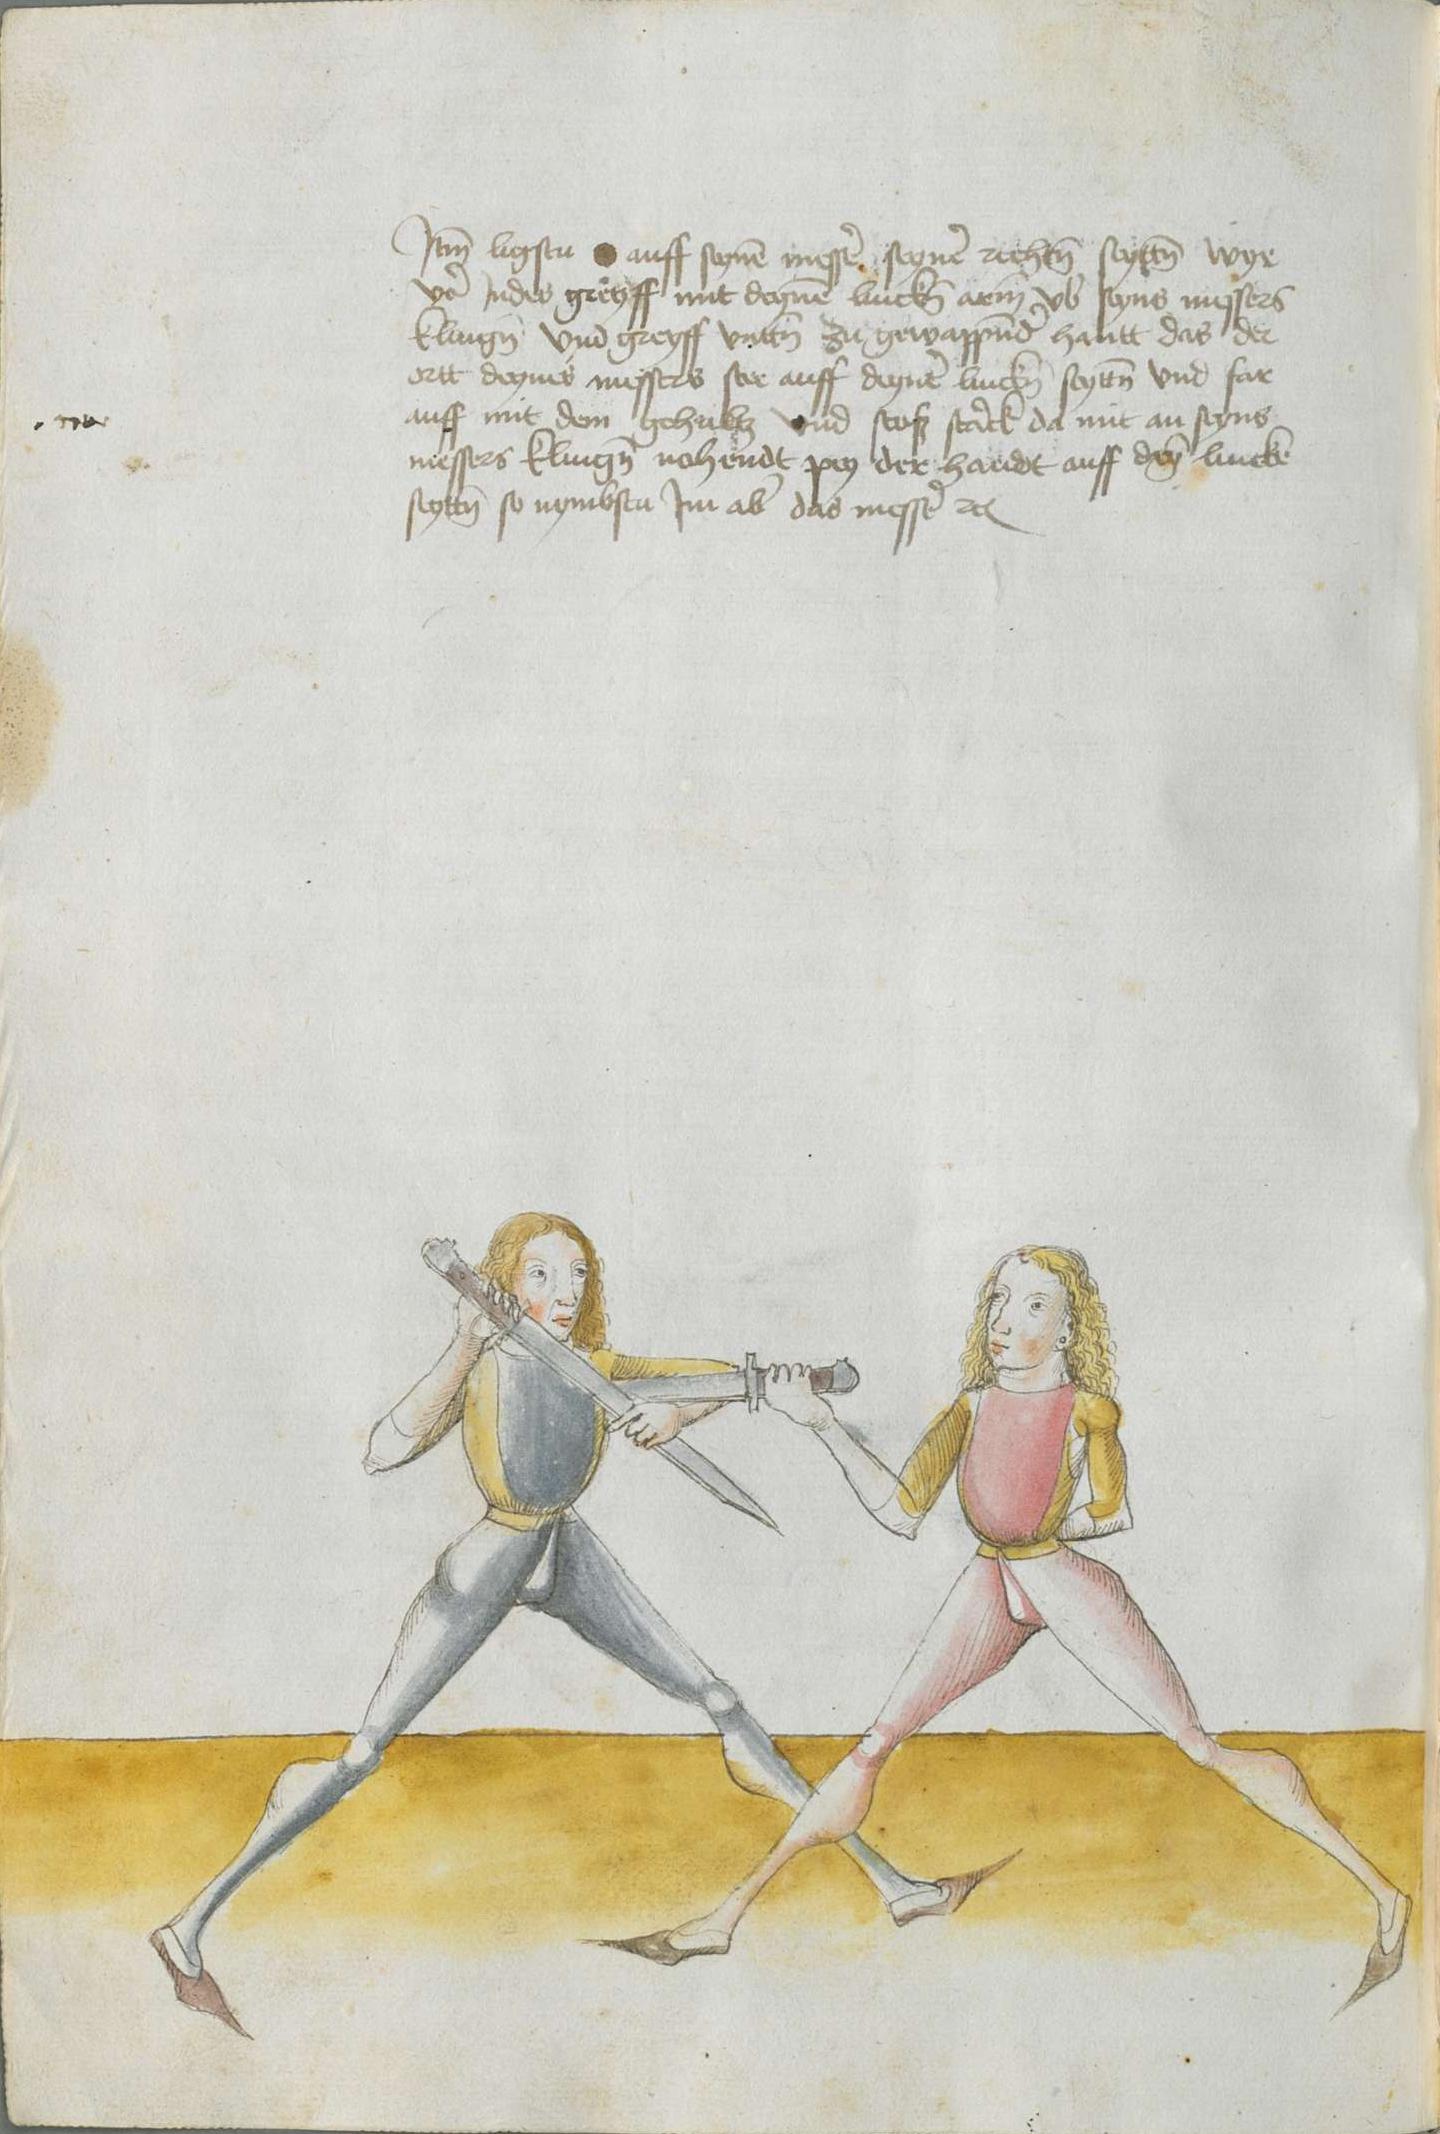 Itm̃ ligstu auff seynē messe᷑ seyne᷑ rechtñ seyttñ wyr
vo᷑ Indes greyff mit deynē linckñ arm̃ vb᷑ seyns messers
klingñ vnd greyff vnttñ zu gewappñde᷑ hantt das der
ortt deynes messers stee auff deyne᷑ linckñ seyttñ vnd far
auff mit dem gehultz vnd stoss starck da mit an seyns
messers klingñ nohendt pey der handt auff dey᷑ lincke
seyttñ so nymbstu Im ab᷑ das messe᷑ rc